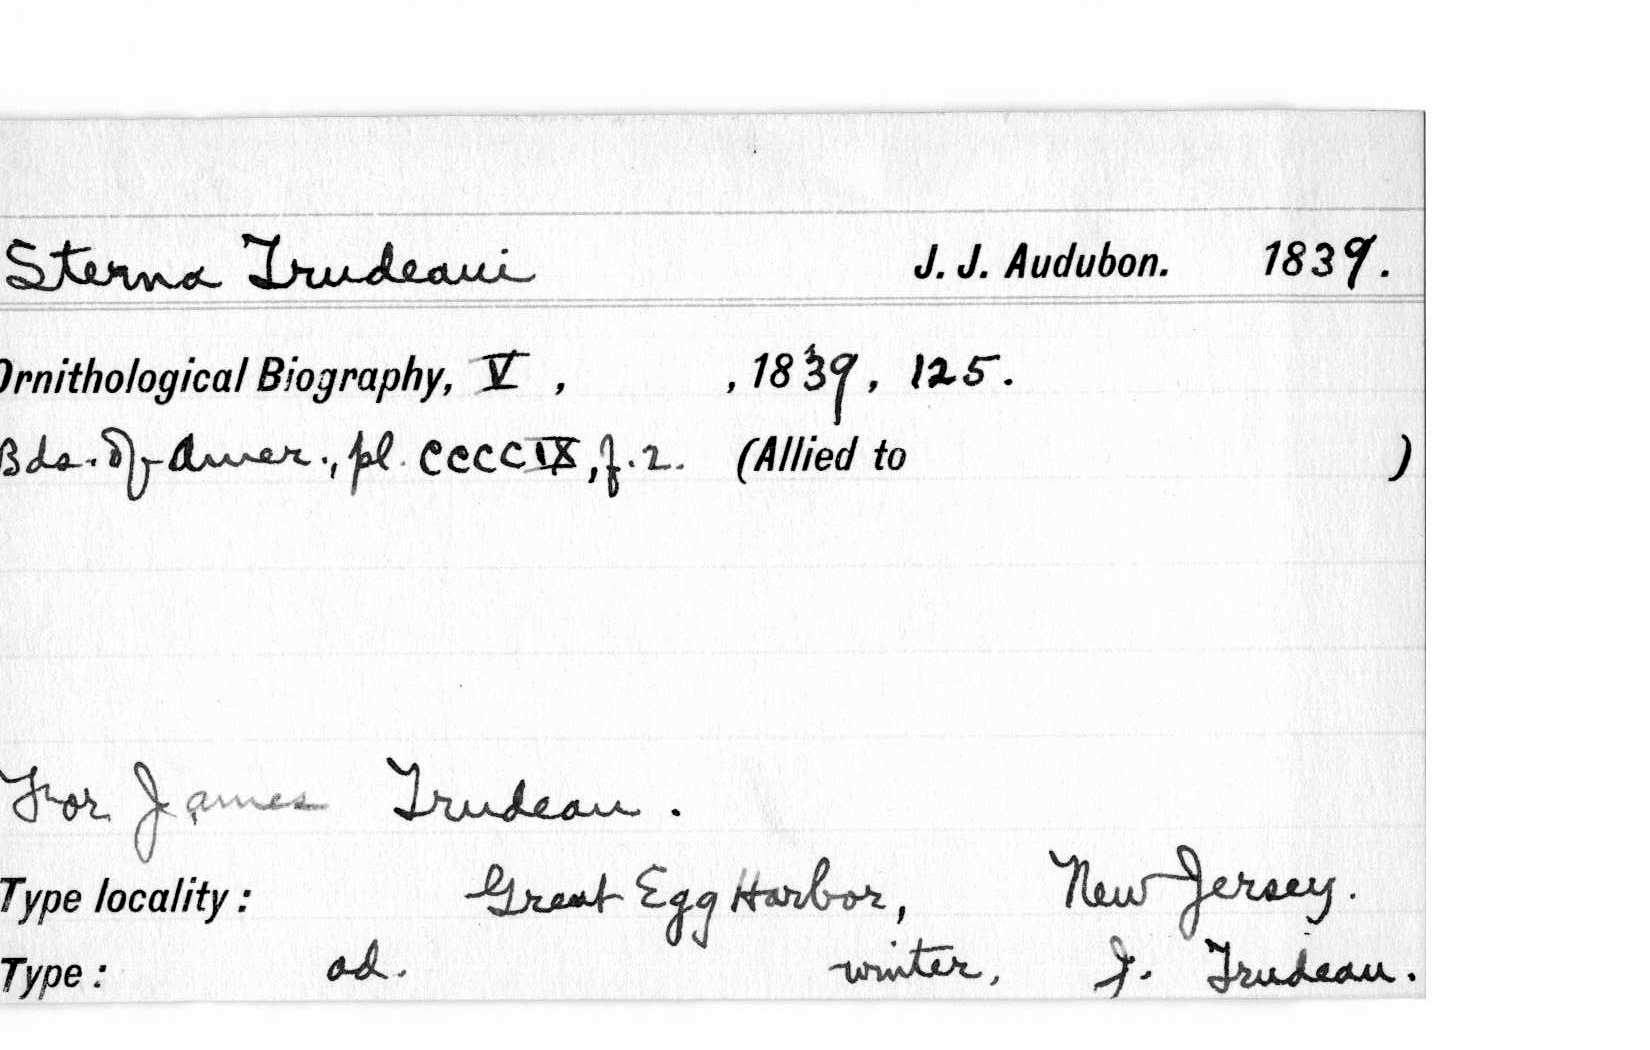 Sterna Trudeaui J. J. Audubon. 1839.
Ornithological Biography, V , , 1839, 125.
Bds. of Amer., pl. CCCCIX, f. 2. (Allied to )
For James Trudeau.
Type locality: Great Egg Harbor, New Jersey.
Type: ad. winter, J. Trudeau.